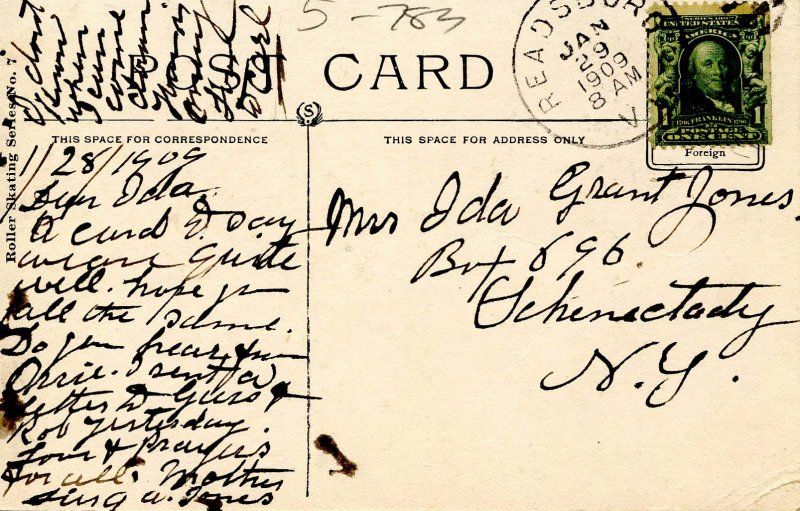 I dont
know
when
come
down
from
Carl
5-783
POST CARD
Roller Skating Series No. 7.
READSBORO
JAN
29
1909
8 AM
V
SERIES 1902
UNITED STATES
AMERICA
1706 FRANKLIN 1790
1 1
POSTAGE
ONE CENT
Foreign
S
THIS SPACE FOR CORRESPONDENCE
THIS SPACE FOR ADDRESS ONLY
1/28/1909
Dear Ida
A card to day
we are quite
well. hope you
all the same.
Do you hear from
Orrie. I sent a
letter to &
Rob yesterday.
Love & Prayers
for all. Mother
A. Jones
Mrs Ida Grant Jones.
Box 696
Schenectady
N.Y.